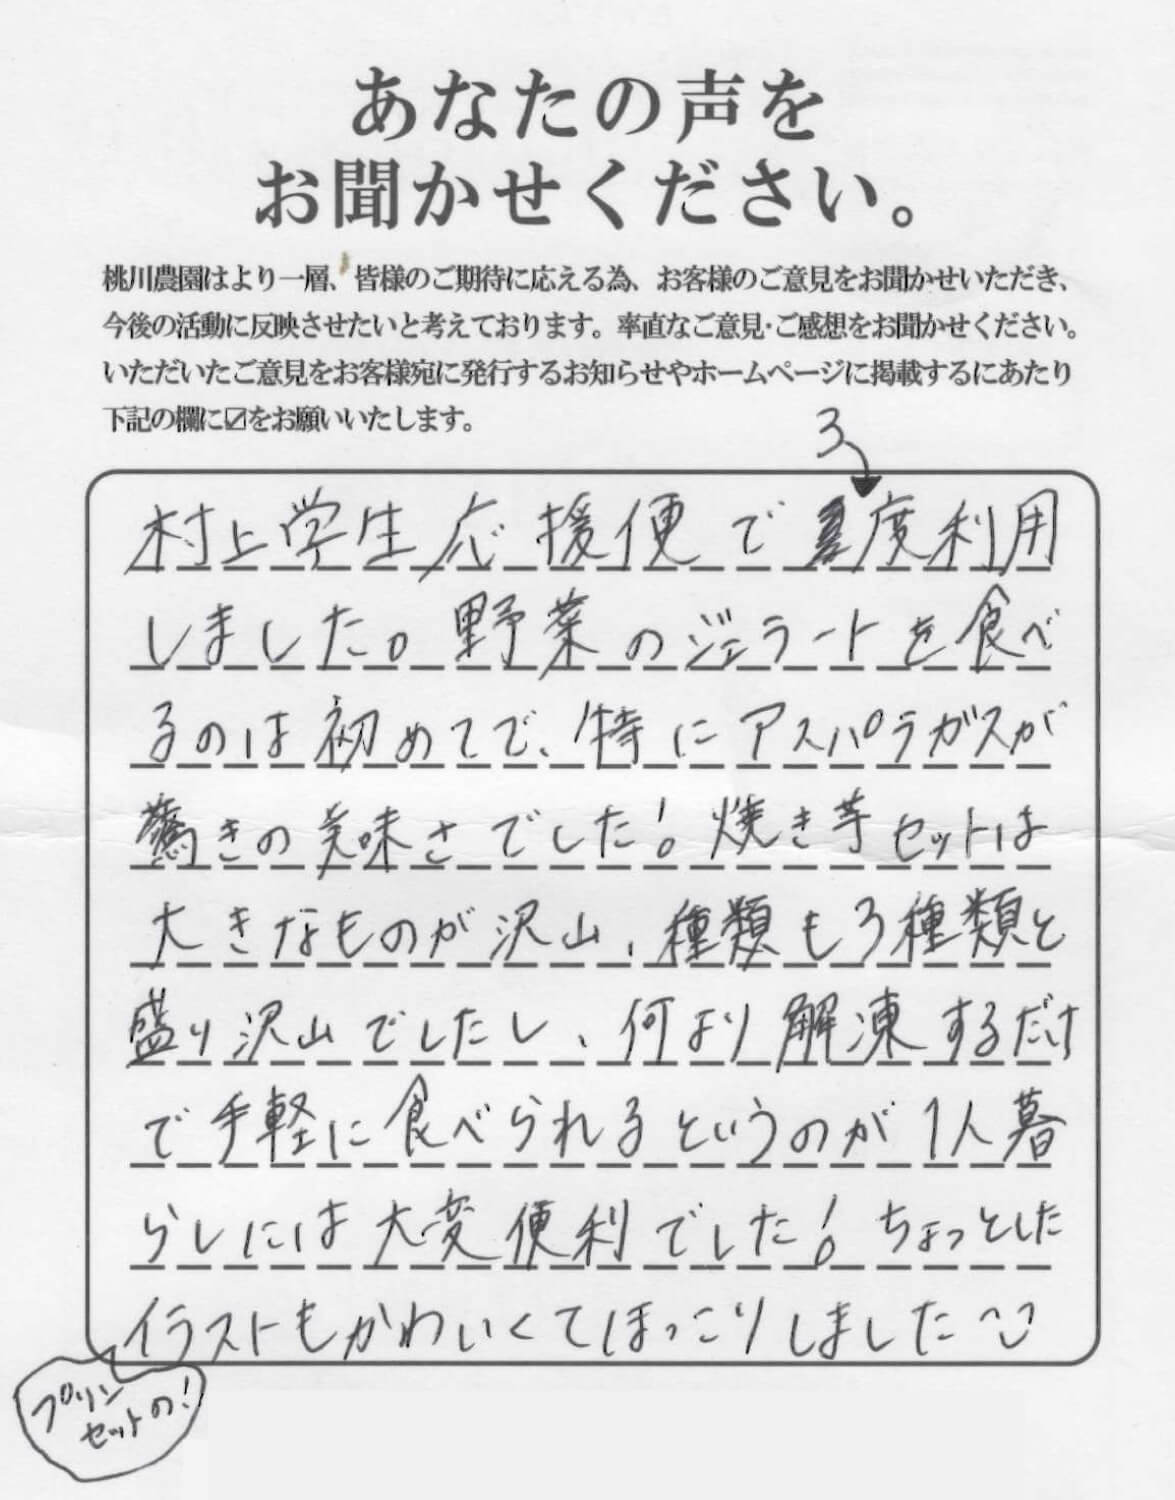 あなたの声を
お聞かせください。
桃川農園はより一層、皆様のご期待に応える為、お客様のご意見をお聞かせいただき、
今後の活動に反映させたいと考えております。率直なご意見・ご感想をお聞かせください。
いただいたご意見をお客様宛に発行するお知らせやホームページに掲載するにあたり
下記の欄に☑をお願いいたします。
3
村上学生応援便で度利用
しました。野菜のジェラートを食べ
るのは初めてで、特にアスパラガスが
驚きの美味さでした!焼き芋セットは
大きなものが沢山、種類も3種類と
盛り沢山でしたし、何より解凍するだけ
で手軽に食べられるというのが1人暮
らしには大変便利でした!ちょっとした
イラストもかわいくてほっこりしました
プリン
セットの!